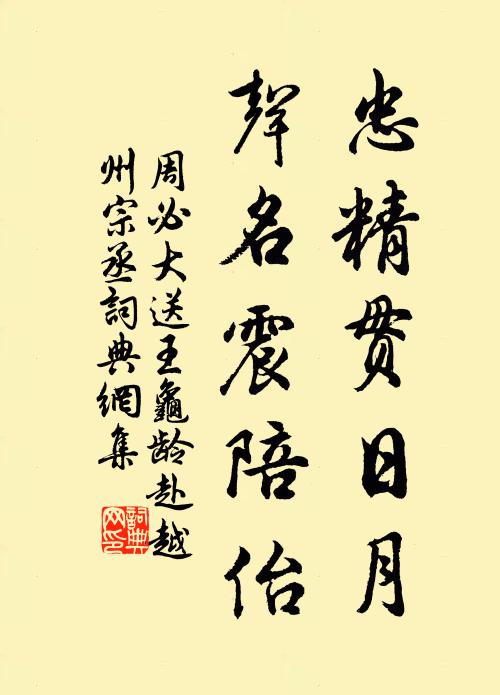 忠精貫日月
聲名震陪佁
周必大送王龜齡赴越
州宗丞詞典網集
詞典
网印